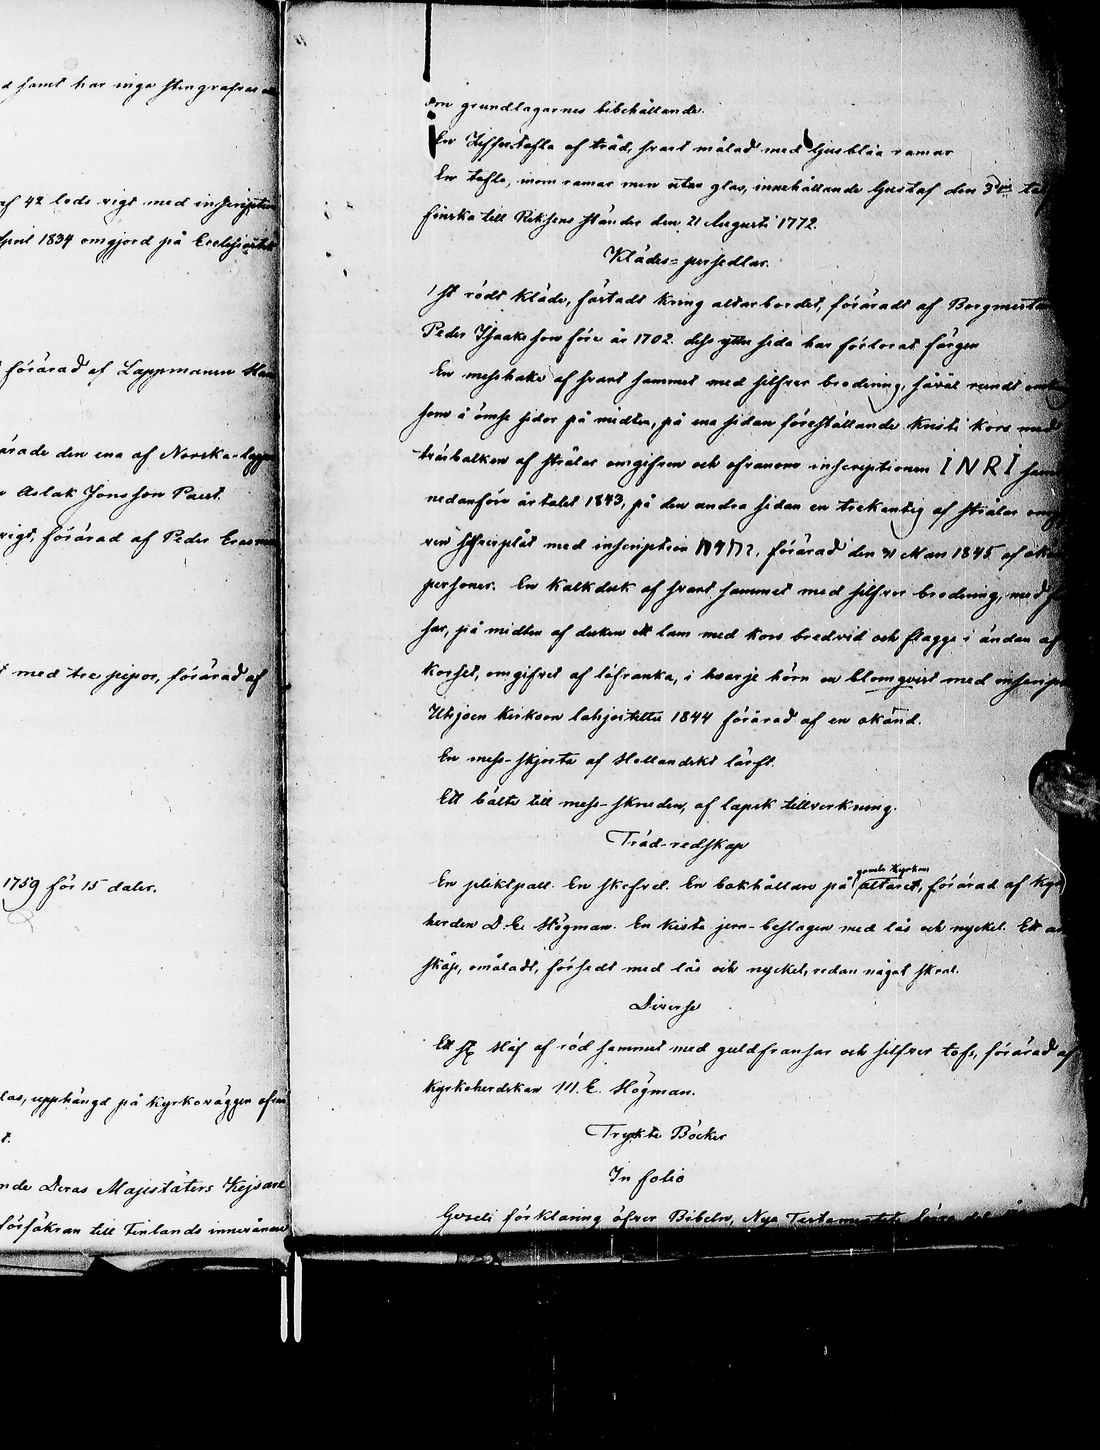 samt har inga
af 42 lods vigt med inscription
April 1834 omgjord på
förärad af Lappmannen
den ena af Norska
Aslak Jonsson
vigt, förärad af Peder
med tre pipor, förärad af
1759 för 15 daler.
upphängd på kyrkoväggen
Deras Majestäters
försäkran till Finlands innevånare
om grundlagarnes bibehållande.
En af träd, svart målad med ljusblåa ramar
En tafla, inom ramar men utan glas, innehållande Gustaf den 3dies tal på
finska till Riksens ständer den 21 Augusti 1772.
Klädes-persedlar.
1 st rödt kläde, fästadt kring altarbordet, föräradt af Borgmestaren
Peder Isaaksson före år 1702. dess yttre sida har förlorat färgen
En messhake af svart sammet med silfver brodering, såväl rundt omkring
som å ömse sidor på midten, på ena sidan föreställande Kristi kors med
tvärbalken af strålar omgifven och ofvanom inscriptionen INRI samt
nedanföre årtalet 1843, på den andra sidan en trekantig af strålar
silfverplåt med inscription יהוה, förärad den 31 Mars 1845 af
personer. En kalkduk af svart sammet med silfver brodering, med
sar, på midten af duken ett lam med kors bredvid och flagge i ändan af
korset, omgifvet af löfranka, i hvarje hörn en blomqvist med
Utsjoen kirkoon lahjoitettu 1844 förärad af en okänd.
En mess-skjorta af Hollandskt lärft.
Ett bälte till mess-skruden, af lapsk tillverkning.
Träd-redskap
En pliktpall. En skofvel. En bokhållare på gamla kyrkans altaret, förärad af Kyrko
herden D. E. Högman. En kista jern-beslagen med lås och nyckel. Ett
skåp, omåladt, försedt med lås och nyckel, redan något
Diverse
Ett st Håf af röd sammet med guldfransar och silfver tofs, förärad af
Kyrkoherdskan M. E. Högman.
Tryckte Böcker
In folio
förklaring öfver Bibeln, Nya Testamentets